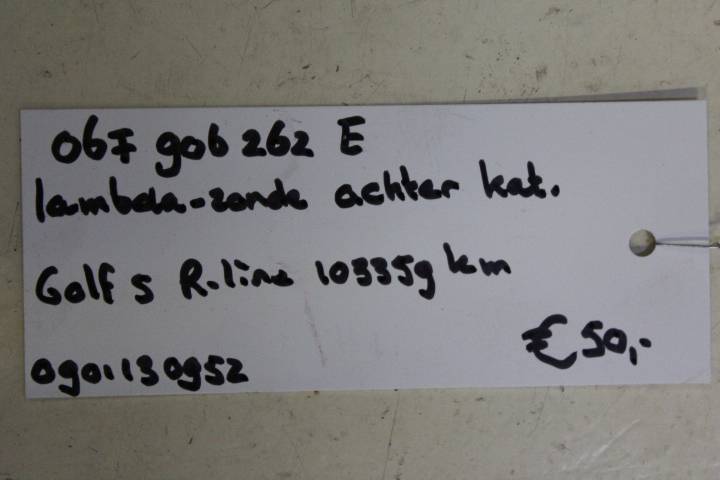 067 906 262 E
lambda-zonde achter kat.
Golf 5 R.line 103359 km
€ 50,-
0901130952